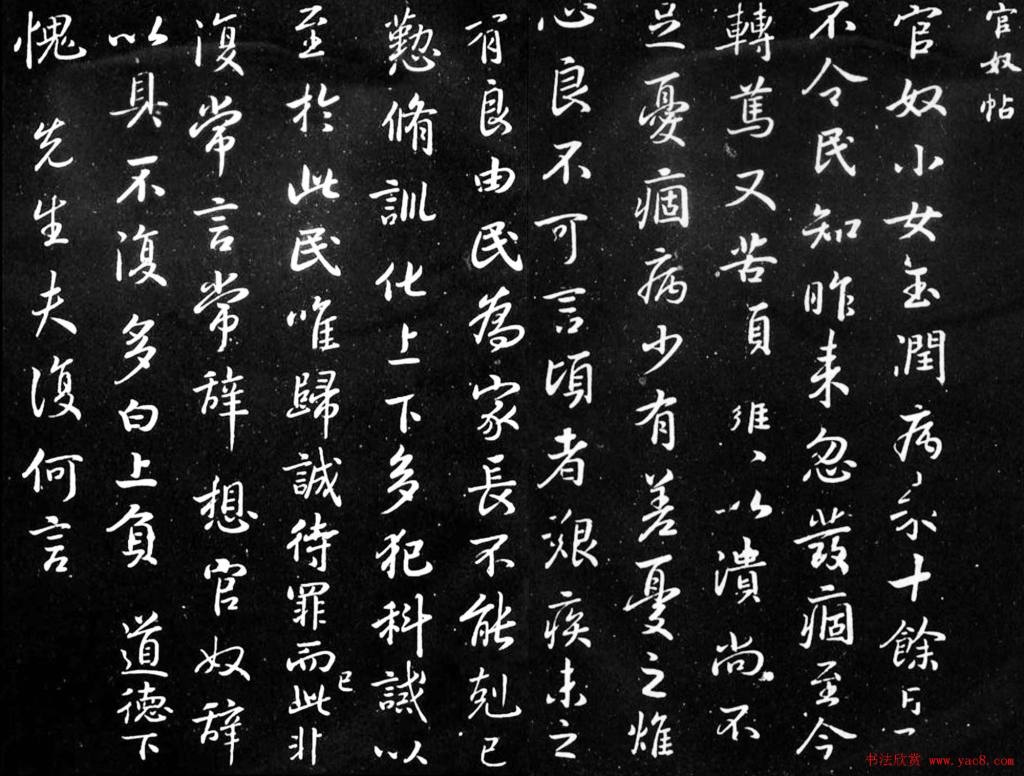 官奴帖
官奴小女玉潤病來十餘日了
不令民知昨来忽發痼至今
轉篤又苦頭癰々以潰尚不
足憂痼病少有差憂之燋
心良不可言頃者艱疾未之
有良由民為家長不能剋己
懃脩訓化上下多犯科誡以
至於此民唯歸誠待罪而已此非
復常言常辞想官奴辞
以具不復多白上負 道德下
愧 先生夫復何言
书法欣赏 www.yac8.com